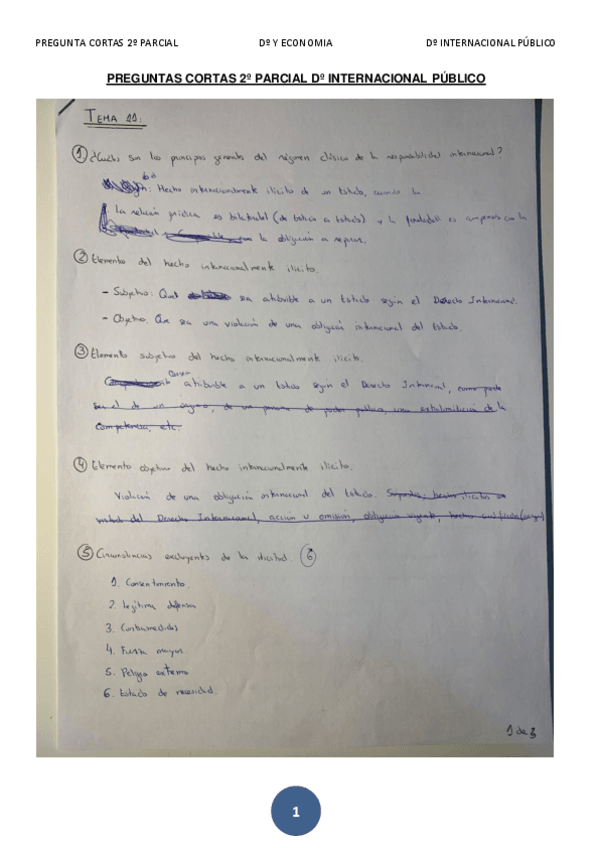 PREGUNTA CORTAS 2º PARCIAL Dº Y ECONOMIA Dº INTERNACIONAL PÚBLICO
PREGUNTAS CORTAS 2º PARCIAL Dº INTERNACIONAL PÚBLICO
TEMA 11:
① ¿Cuáles son los principios generales del régimen clásico de la responsabilidad internacional?
Hecho internacionalmente ilícito de un Estado, cuando la
La relación jurídica es bilateral (de Estado a Estado) y la finalidad es compensar con la
la obligación a reparar.
② Elementos del hecho internacionalmente ilícito.
- Subjetivo: Que sea atribuible a un Estado según el Derecho Internacional.
- Objetivo. Que sea una violación de una obligación internacional del Estado.
③ Elemento subjetivo del hecho internacionalmente ilícito.
atribuible a un Estado según el Derecho Internacional, como puede
ser el de un órgano, de una persona de poder público, una extralimitación de la
competencia, etc.
④ Elemento objetivo del hecho internacionalmente ilícito.
Violación de una obligación internacional del Estado.
virtud del Derecho Internacional, acción u omisión, obligación vigente, hecho
⑤ Circunstancias excluyentes de la ilicitud. ⑥
1. Consentimiento.
2. Legítima defensa
3. Contramedidas
4. Fuerza mayor.
5. Peligro extremo
6. Estado de necesidad.
1 de 3
1